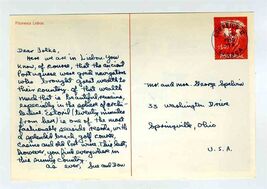 Pitoresca Lisboa
Dear Folks,
Here we are in Lisbon. You
know, of course, that the ancient
Portuguese were good navigators
who brought great wealth to
their country. Of that wealth
much that is beautiful remains,
especially in the sphere of archi-
tecture. Estoril (twenty miles
from here) is one of the most
fashionable seaside resorts, with
a splendid beach, golf course,
casino and old Fort Cruz. This best,
however, you find everywhere in
this sunny country.
As ever, Sue and Don
Mr and Mrs. George Sperlin
33 Washington Drive
Springville, Ohio
U.S.A.